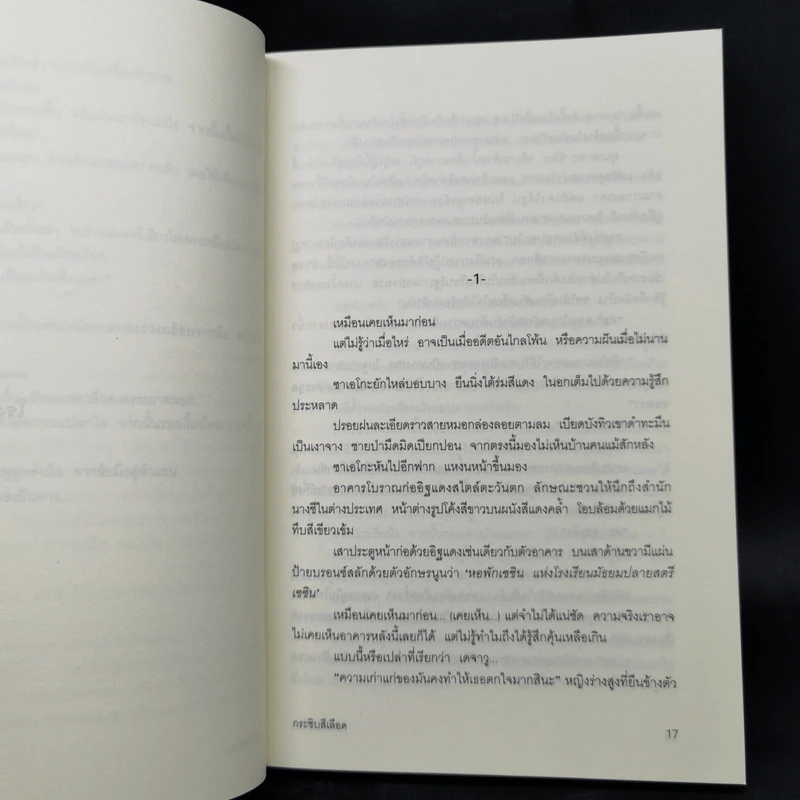 -1-
เหมือนเคยเห็นมาก่อน
แต่ไม่รู้ว่าเมื่อไหร่ อาจเป็นเมื่ออดีตอันไกลโพ้น หรือความฝันเมื่อไม่นาน
มานี้เอง
ซาเอโกะยักไหล่บอบบาง ยืนนิ่งใต้ร่มสีแดง ในอกเต็มไปด้วยความรู้สึก
ประหลาด
ปรอยฝนละเอียดราวสายหมอกล่องลอยตามลม เบียดบังทิวเขาดำทะมึน
เป็นเงาจาง ชายป่ามืดมิดเปียกปอน จากตรงนี้มองไม่เห็นบ้านคนแม้สักหลัง
ซาเอโกะหันไปอีกฟาก แหงนหน้าขึ้นมอง
อาคารโบราณก่ออิฐแดงสไตล์ตะวันตก ลักษณะชวนให้นึกถึงสำนัก
นางชีในต่างประเทศ หน้าต่างรูปโค้งสีขาวบนผนังสีแดงคล้ำ โอบล้อมด้วยแมกไม้
ทึบสีเขียวเข้ม
เสาประตูหน้าก่อด้วยอิฐแดงเช่นเดียวกับตัวอาคาร บนเสาด้านขวามีแผ่น
ป้ายบรอนซ์สลักด้วยตัวอักษรนูนว่า ‘หอพักเซชิน แห่งโรงเรียนมัธยมปลายสตรี
เซชิน’
เหมือนเคยเห็นมาก่อน... (เคยเห็น...) แต่จำไม่ได้แน่ชัด ความจริงเราอาจ
ไม่เคยเห็นอาคารหลังนี้เลยก็ได้ แต่ไม่รู้ทำไมถึงได้รู้สึกคุ้นเหลือเกิน
แบบนี้หรือเปล่าที่เรียกว่า เดจาวู...
“ความเก่าแก่ของมันคงทำให้เธอตกใจมากสินะ” หญิงร่างสูงที่ยืนข้างตัว
กระซิบสีเลือด
17